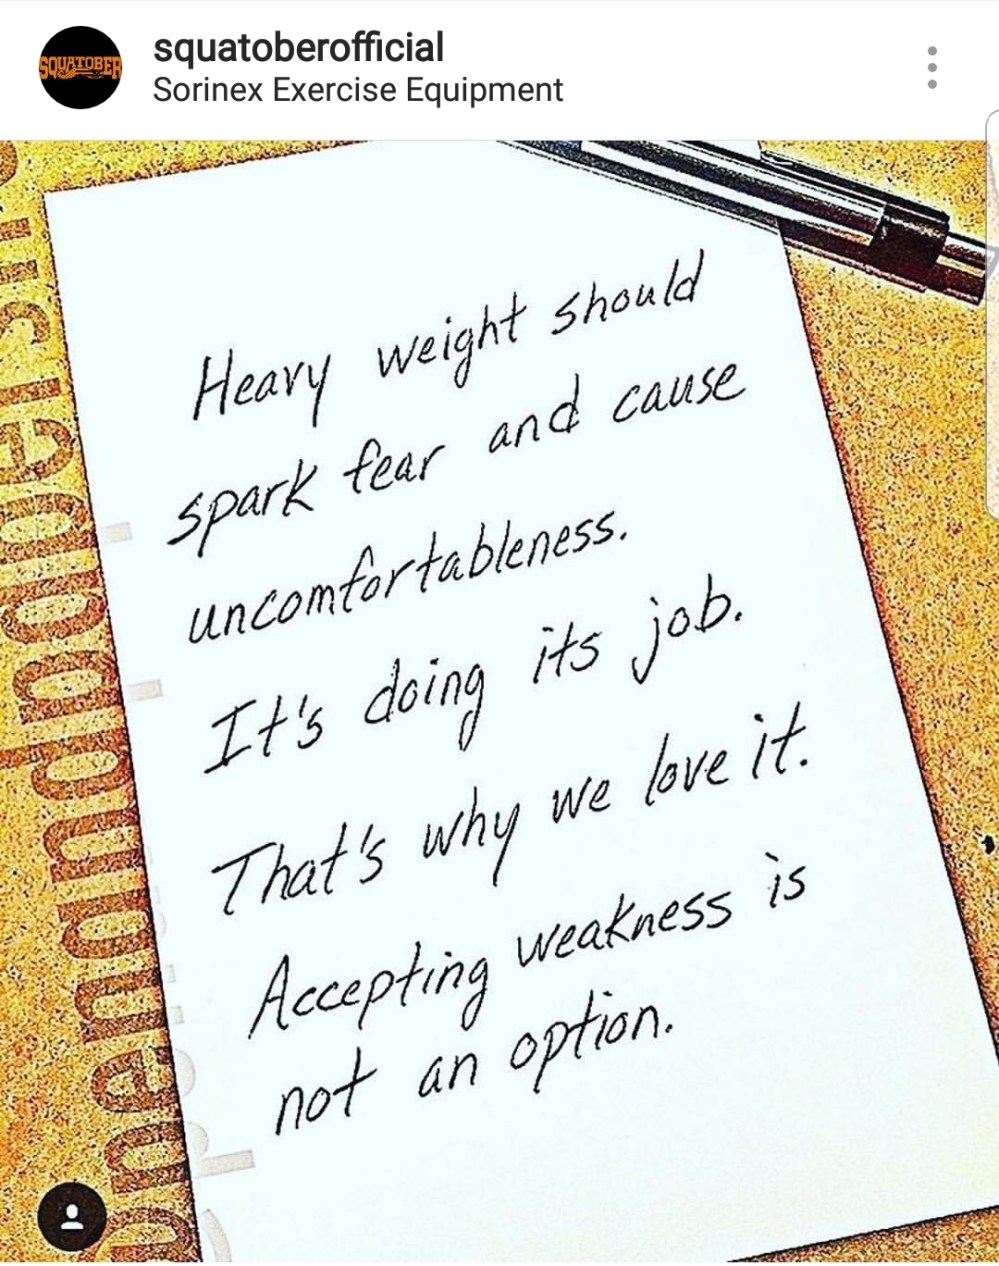 SQUATOBER
squatoberofficial
Sorinex Exercise Equipment
Heavy weight should
spark fear and cause
uncomfortableness.
It's doing its job.
That's why we love it.
Accepting weakness is
not an option.